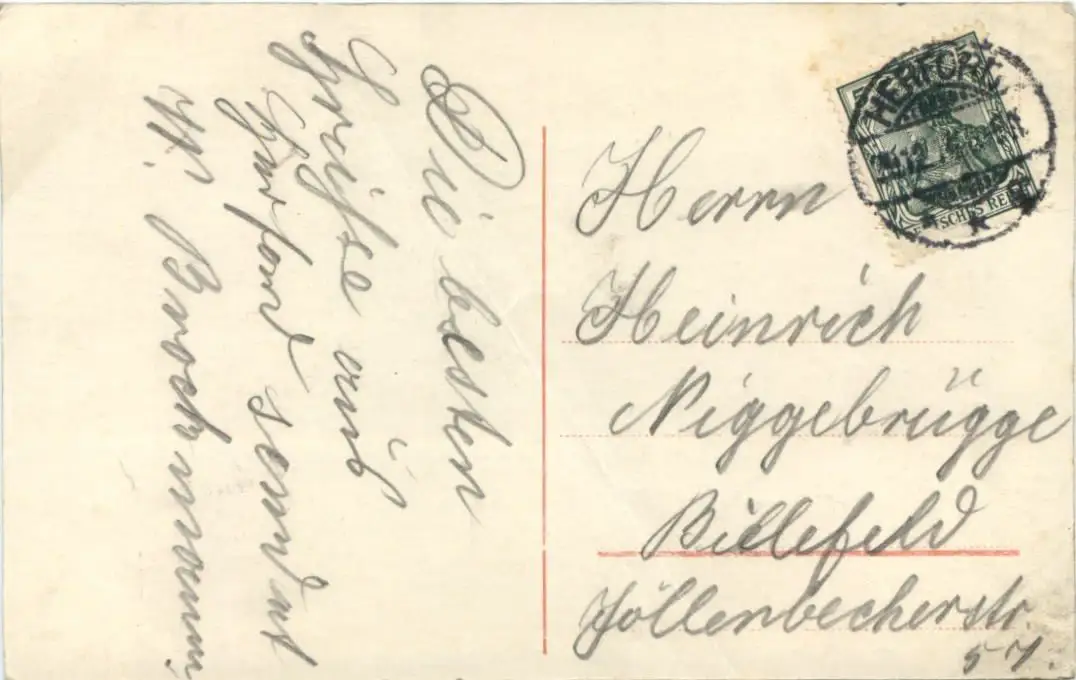 Die besten
Grüße aus
Herford sendet
W. Brockmann
Herrn
Heinrich
Niggebrügge
Billefeld
Jöllenbecherstr.
57.
HERFORD
5
DEUTSCHES REICH